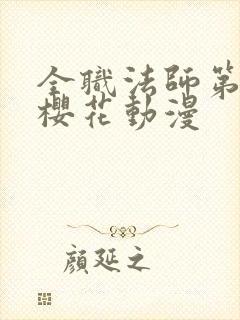 全職法師第
櫻花動漫
顏延之